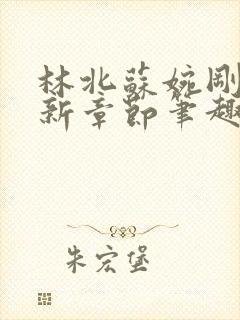 林北蘇婉剛
新章節筆趣
朱宏堡